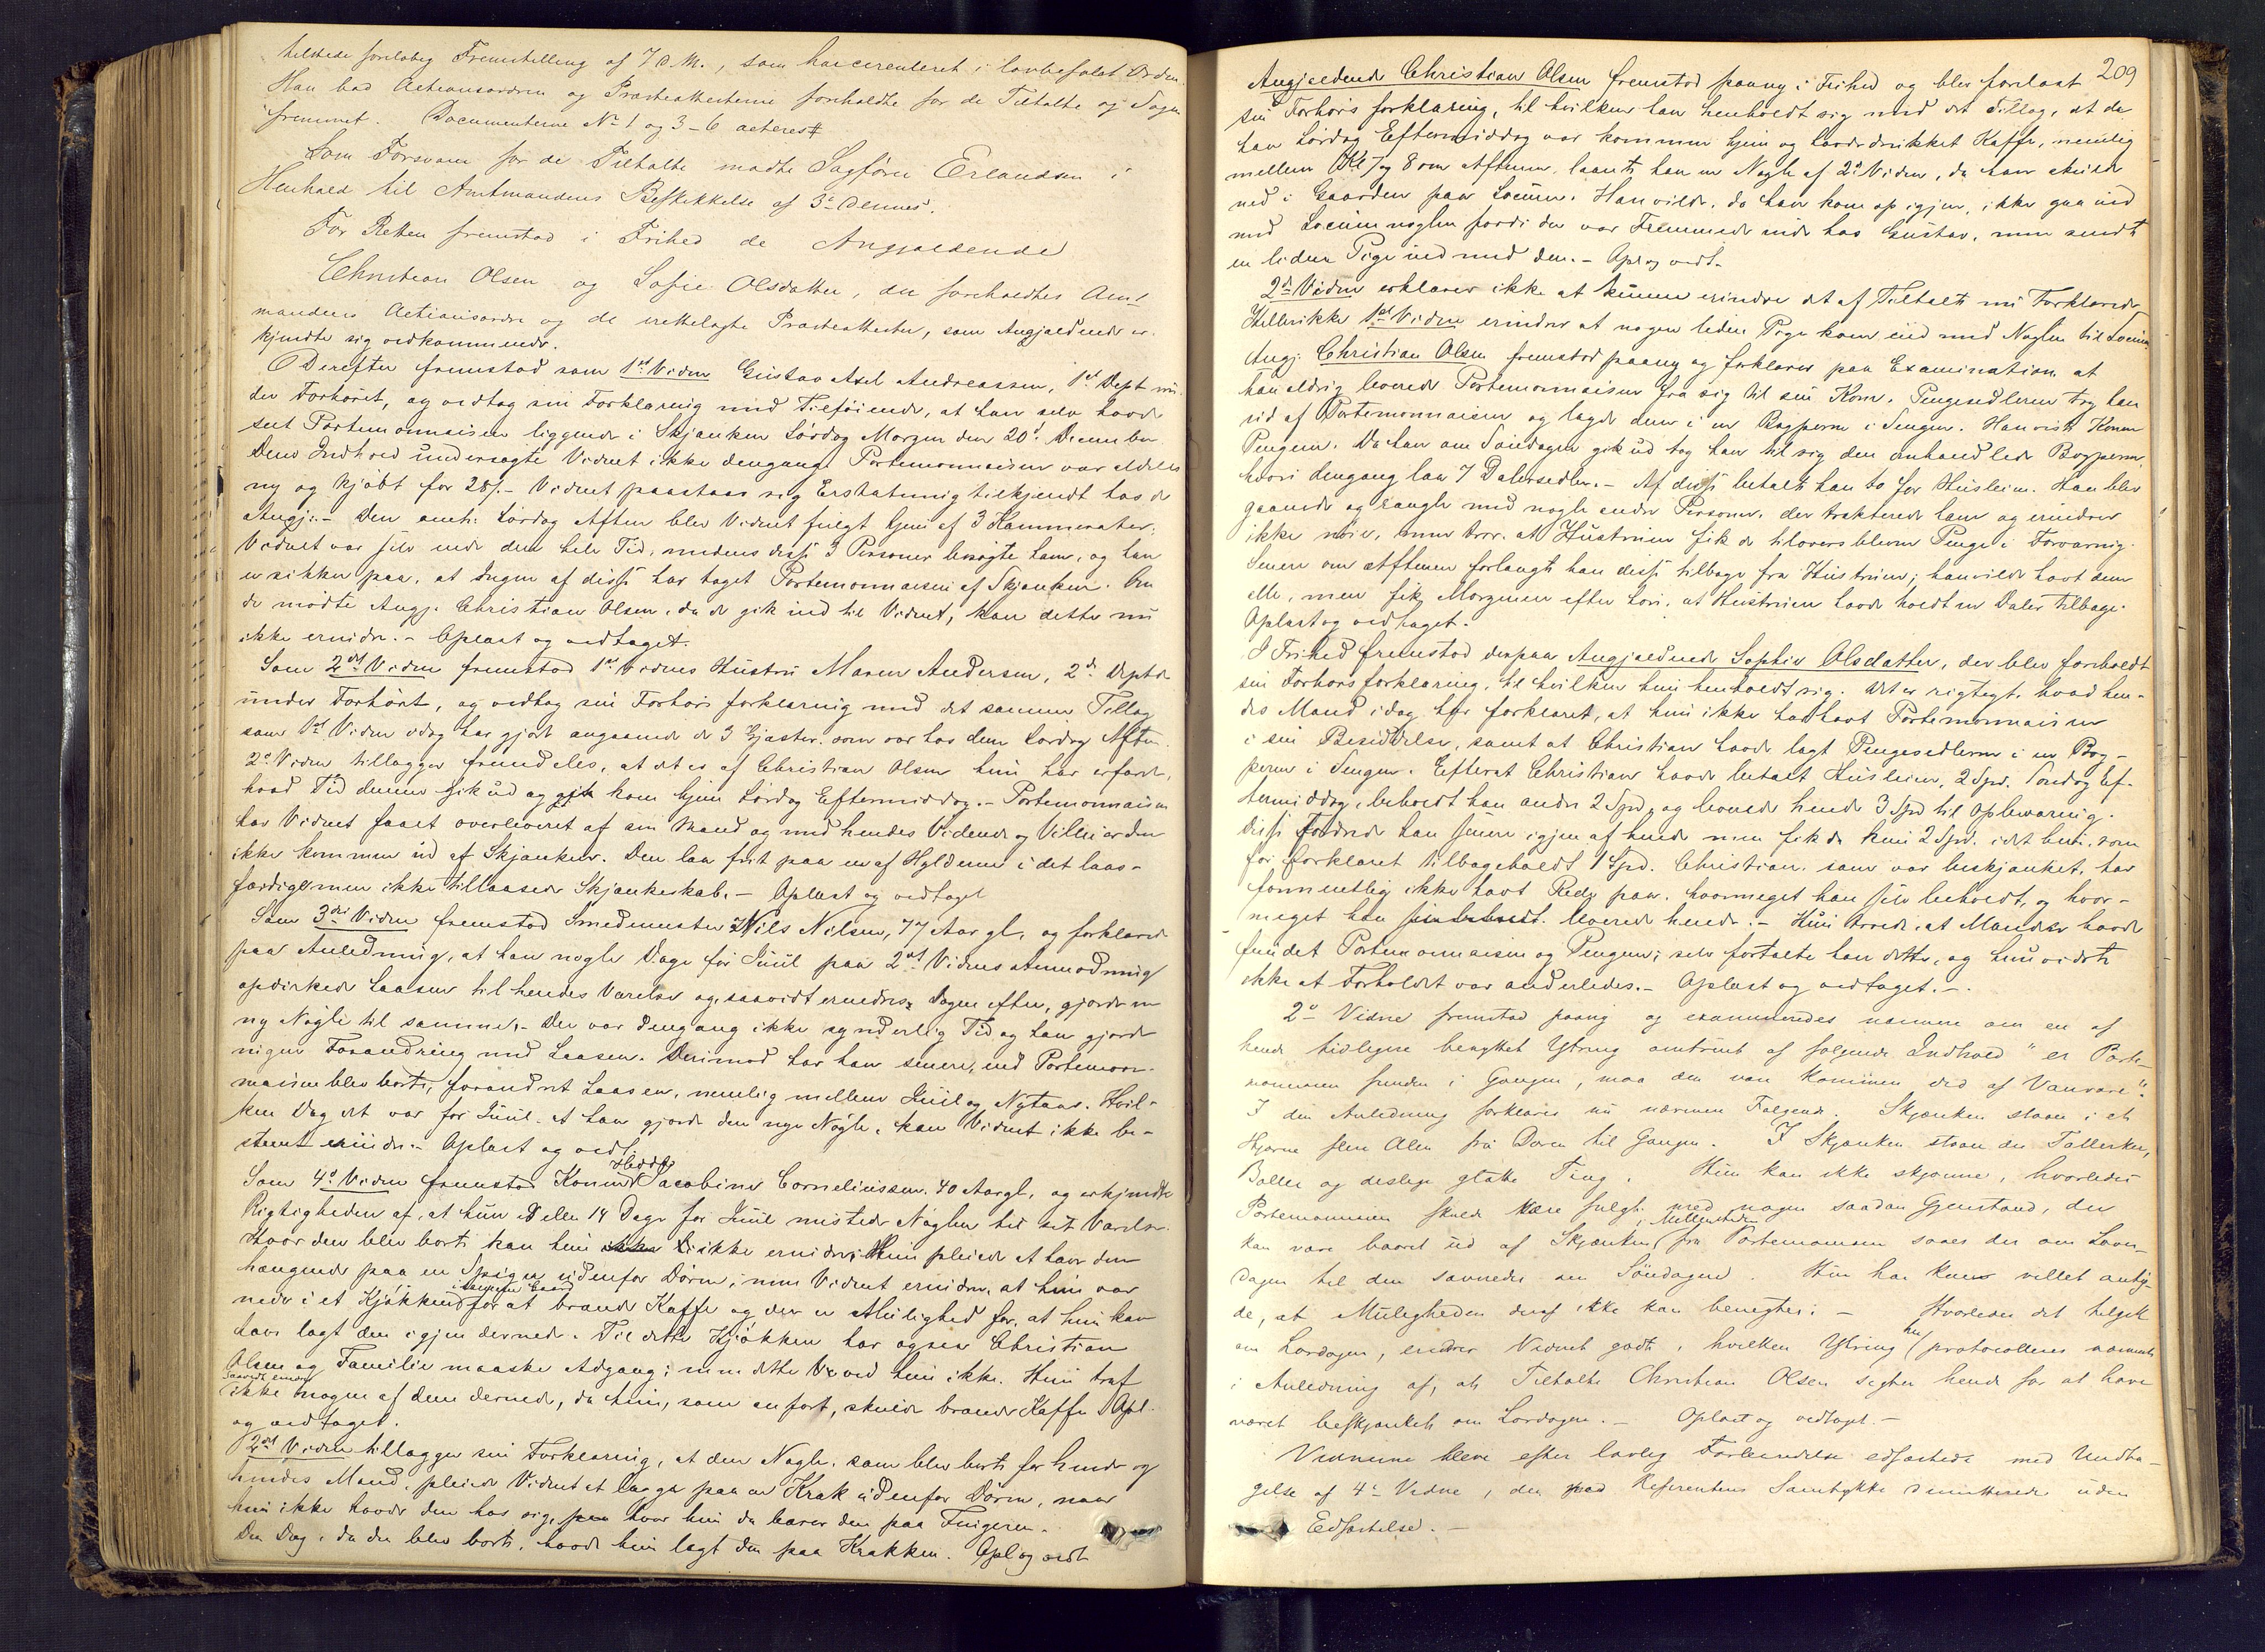 tilstede foreløbig Fremstilling af 7 d. M., som har circuleret i lovbefalet Orden.
Han bad Actionsordren og Præsteattesterne foreholdte for de Tiltalte og Sagen
fremmet. Documenterne No 1 og 3–6 acteres.
Som Forsvarer for de Tiltalte mødte Sagfører Erlandsen i
Henhold til Amtmandens Beskikkelse af 3die dennes.
For Retten fremstod i Frihed de Angjældende
Christian Olsen og Sofie Olsdatter, der foreholdtes Amt-
mandens Actionsordre og de irettelagte Præsteattester, som Angjældende er-
kjendte sig vedkommende.
Derefter fremstod som 1ste Vidne Gustav Axel Andreassen, 1ste Dept un-
der Forhøret, og vedtog sin Forklaring med Tilføiende, at han selv havde
seet Portemonnaien liggende i Skjænken Lørdag Morgen den 20de December
Dens Indhold undersøgte Vidnet ikke dengang. Portemonnaien var aldeles
ny og kjøbt for 28 s. – Vidnet paastaar sig Erstatning tilkjendt hos de
Angj: – Den omh: Lørdag Aften blev Vidnet fulgt hjem af 3 Kammerater.
Vidnet var selv inde den hele Tid, medens disse 3 Personer besøgte ham, og han
er sikker paa, at Ingen af disse har taget Portemonnaien af Skjænken. Om
de mødte Angj. Christian Olsen, da de gik ind til Vidnet, kan dette nu
ikke erindre. – Oplæst og vedtaget.
Som 2det Vidne fremstod 1ste Vidnes Hustru Maren Andersen, 2det Dept
under Forhøret, og vedtog sin Forhørsforklaring med det samme Tillæg
som 1ste Vidne idag har gjort angaaende de 3 Gjæster, som var hos dem Lørdag Aften.
2det Vidne tillægger fremdeles, at det er af Christian Olsen hun har erfaret,
hvad Tid denne gik ud og gik kom hjem Lørdag Eftermiddag. – Portemonnaien
har Vidnet faaet overleveret af sin Mand og med hendes Vidende og Villie er den
ikke kommen ud af Skjænken. Den laa frit paa en af Hylderne i det laas-
færdige, men ikke tillaasede Skjænkeskab. – Oplæst og vedtaget
Som 3die Vidne fremstod Smedemester Nils Nilsen, 77 Aar gl, og forklarede
paa Anledning, at han nogle Dage før Juul paa 2det Vidnes Anmodning
opdirkede Laasen til hendes Værelse og, saavidt erindres, Dagen efter, gjorde en
ny Nøgle til samme. – Der var dengang ikke synderlig Tid og han gjorde
ingen Forandring med Laasen. Derimod har han senere, end Portemon-
naien blev borte, forandret Laasen, nemlig mellem Juul og Nytaar. Hvil-
ken Dag det var før Juul, at han gjorde den nye Nøgle, kan Vidnet ikke be-
stemt erindre. – Oplæst og vedt.
Som 4de Vidne fremstod Konen Hedda Jacobine Corneliussen, 40 Aar gl, og erkjendte
Rigtigheden af, at hun 8 eller 14 Dage før Juul mistede Nøglen til sit Værelse.
Hvor den blev borte kan hun ikke erindre; Hun pleiede at have den
hængende paa en Spiger udenfor Døren, men Vidnet erindrer, at hun var
nede i et Kjøkken i samme Gaard for at brænde Kaffe og der er Mulighed for, at hun kan
have lagt den igjen dernede. Til dette Kjøkken har ogsaa Christian
Olsen og Familie maaske Adgang; men dette Ved hun ikke. Hun traf
saavidt erindres ikke nogen af dem dernede, da hun, som anført, skulde brænde Kaffe. Opl.
og vedtaget.
2det Vidne tillægger sin Forklaring, at den Nøgle, som blev borte for hende og
hendes Mand, pleiede Vidnet at lægge paa en Krak udenfor Døren, naar
hun ikke havde den hos sig, hvor hun da bærer den paa Fingeren.
Den Dag, da den blev borte, havde hun lagt den paa Krakken. Opl og vedt
209
Angjældende Christian Olsen fremstod paany i Frihed og blev forelæst
sin Forhørsforklaring, til hvilken han henholdt sig med det Tillæg, at da
han Lørdag Eftermiddag var kommen hjem og havde drukket Kaffe, nemlig
mellem Kl 7 og 8 om Aftenen, laante han en Nøgle af 2det Vidne, da han skulde
ned i Gaarden paa Locum. Han vilde, da han kom op igjen, ikke gaa ind
med Locumnøglen fordi der var Fremmede inde hos Gustav, men sendte
en liden Pige ind med den. – Opl og vedt.
2det Vidne erklærer ikke at kunne erindre det af Tiltalte nu Forklarede
Hellerikke 1ste Vidne erindrer at nogen liden Pige kom ind med Nøglen til Locum.
Angj. Christian Olsen fremstod paany og forklarer paa Examination at
han aldrig leverede Portemonnaien fra sig til sin Kone. Pengesedlerne tog han
ud af Portemonnaien og lagde dem i en Bogperm i Sengen. Han viste Konen
Pengene. Da han om Søndagen gik ud tog han til sig den omhandlede Bogperm,
hvori dengang laa 7 Dalersedler. – Af disse betalte han to for Husleien. Han blev
gaaende og rangle med nogle andre Personer, der trakterede ham og erindrer
ikke nøie, men tror, at Hustruen fik de tiloversblevne Penge i Forvaring.
Senere om Aftenen forlangte han disse tilbage fra Hustruen; han vilde havt dem
alle, men fik Morgenen efter høre, at Hustruen havde holdt en Daler tilbage.
Oplæst og vedtaget.
I Frihed fremstod derpaa Angjældende Sophie Olsdatter, der blev foreholdt
sin Forhørsforklaring, til hvilken hun henholdt sig. Det er rigtigt, hvad hen-
des Mand idag har forklaret, at hun ikke har havt Portemonnaien
i sin Besiddelse, samt at Christian havde lagt Pengesedlerne i en Bog-
perm i Sengen. Efterat Christian havde betalt Husleien, 2 Spd. Søndag Ef-
termiddag, beholdt han andre 2 Spd, og leverede hende 3 Spd til Opbevaring.
Disse fordrede han senere igjen af hende men fik da kun 2 Spd. idet hun, som
før forklaret tilbageholdt 1 Spd. Christian, som var beskjænket, har
formentlig ikke havt Rede paa, hvormeget han selv beholdt, og hvor-
meget han leverede hende. – Hun troede, at Manden havde
fundet Portemonnaien og Pengene; selv fortalte han dette, og hun vidste
ikke at Forholdet var anderledes. – Oplæst og vedtaget. –
2det Vidne fremstod paany og examineredes nærmere om en af
hende tidligere benyttet Ytring omtrent af følgende Indhold "er Porte-
monnaien funden i Gangen, maa den være kommen ud af Vanvare".
I den Anledning forklares nu nærmere Følgende. Skjænken staaer i et
Hjørne flere Alen fra Døren til Gangen. I Skjænken staaer der Tallerkener,
Boller og deslige glatte Ting. Hun kan ikke skjønne, hvorledes
Portemonnaien skulde være fulgt med nogen saadan Gjenstand, der
kan være baaret ud af Skjænken i Mellemtiden fra Portemonnaien saaes der om Løver-
dagen til den savnedes om Søndagen. Hun har kun villet anty-
de, at Muligheden deraf ikke kan benegtes. – Hvorledes det tilgik
om Lørdagen, erindrer Vidnet godt, hvilken Ytring hun protocolleres nærmest
i Anledning af, at Tiltalte Christian Olsen sigter hende for at have
været beskjænket om Lørdagen. – Oplæst og vedtaget. –
Vidnerne bleve efter lovlig Forberedelse edfæstede med Undta-
gelse af 4de Vidne, der med Referentens Samtykke dimitteredes uden
Edfæstelse. –